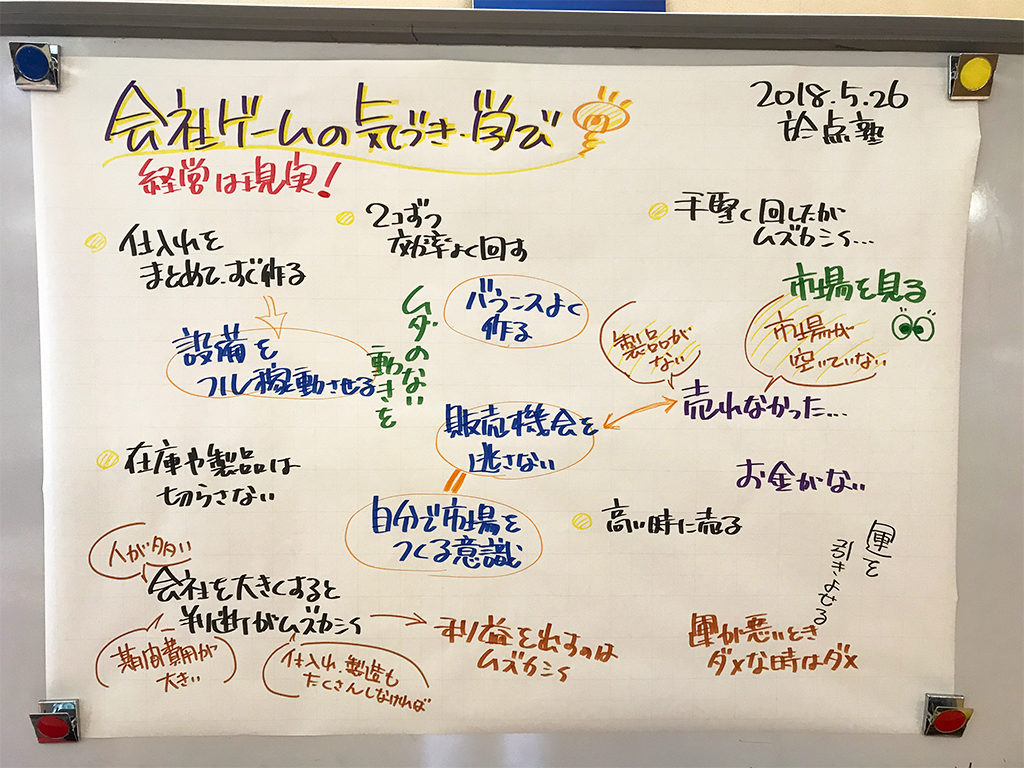 会社ゲームの気づき・学び
2018.5.26
於点塾
経営は現実!
仕入れを
まとめて、すぐ作る
2コずつ
効率よく回す
手堅く回したが
ムズカシく…
設備を
フル稼動させる
ムダのない
動きを
バランスよく
作る
製品が
ない
市場を見る
市場が
空いていない
販売機会を
逃さない
売れなかった…
在庫や製品は
切らさない
自分で市場を
つくる意識
高い時に売る
お金がない
運を
引きよせる
人が多い
会社を大きくすると
判断がムズカシく
期間費用が
大きい
仕入れ、製造も
たくさんしなければ
利益を出すのは
ムズカシく
運が悪いとき
ダメな時はダメ